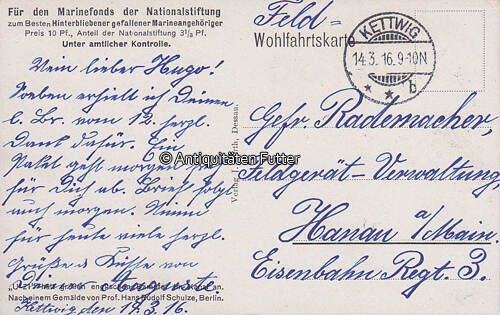 Für den Marinefonds der Nationalstiftung
zum Besten Hinterbliebener gefallener Marineangehöriger
Preis 10 Pf., Anteil der Nationalstiftung 3⅓ Pf.
Unter amtlicher Kontrolle.
Mein lieber Hugo!
Soeben erhielt ich Deinen
l. Br. vom 12. herzl.
Dank dafür. Ein
Paket geht morgen
für Dich ab. Brief folgt
auch morgen. Nimm
für heute viele herzl.
Grüße & Küsse von
Deiner Auguste.
Kettwig den 14.3.16.
engl
Nach einem Gemälde von Prof. Hans Rudolf Schulze, Berlin.
Verlag J. Dessau.
Feld-
Wohlfahrtskarte
KETTWIG
14.3.16.9-10N
* * b
Gefr. Rademacher,
Feldgerät-Verwaltung
Hanau a/Main
Eisenbahn Regt. 3.
© Antiquitäten Futter